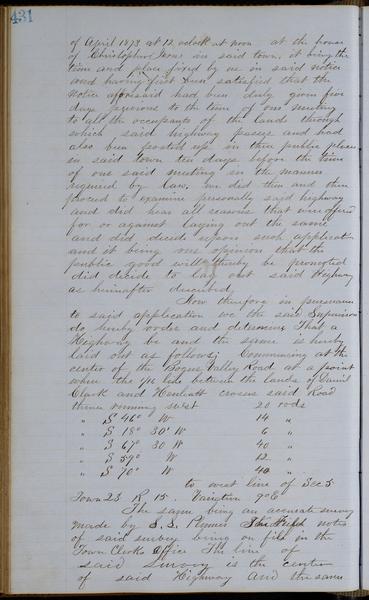 431
of April 1873 at 12 oclock at noon at the house
of Christopher in said town, it being the
time and place fixed by us in said notice
and having first been satisfied that the
Notice aforesaid had been duly given five
days previous to the time of our meeting
to all the occupants of the lands through
which said highway passes and had
also been posted up in three public places
in said town ten days before the time
of our said meeting in the manner
required by law, we did then and there
proceed to examine personally said highway
and did hear all reasons that were offered
for or against laying out the same
and did decide upon such application
and it being our opinion that the
public good will thereby be promoted
did decide to lay out said Highway
as hereinafter described,
Now therefore in pursuance
to said application we the said Supervisors
do hereby order and determine That a
Highway be and the same is hereby
laid out as follows; Commencing at the
center of the Bogus Valley Road at a point
where the line between the lands of Daniel
Clark and crosses said Road
thence running west 20 rods
" S 46° W 14 "
" S 18° 30' W 6 "
" S 67° 30 W 40 "
" S 59° W 12 "
" S 70° W 40 "
to west line of Sec 5
Town 23 R 15. Variation 9° E
The same being an accurate survey
made by S. S. notes
of said survey being on file in the
Town Clerks Office The line of
said Survey is the center
of said Highway and the same